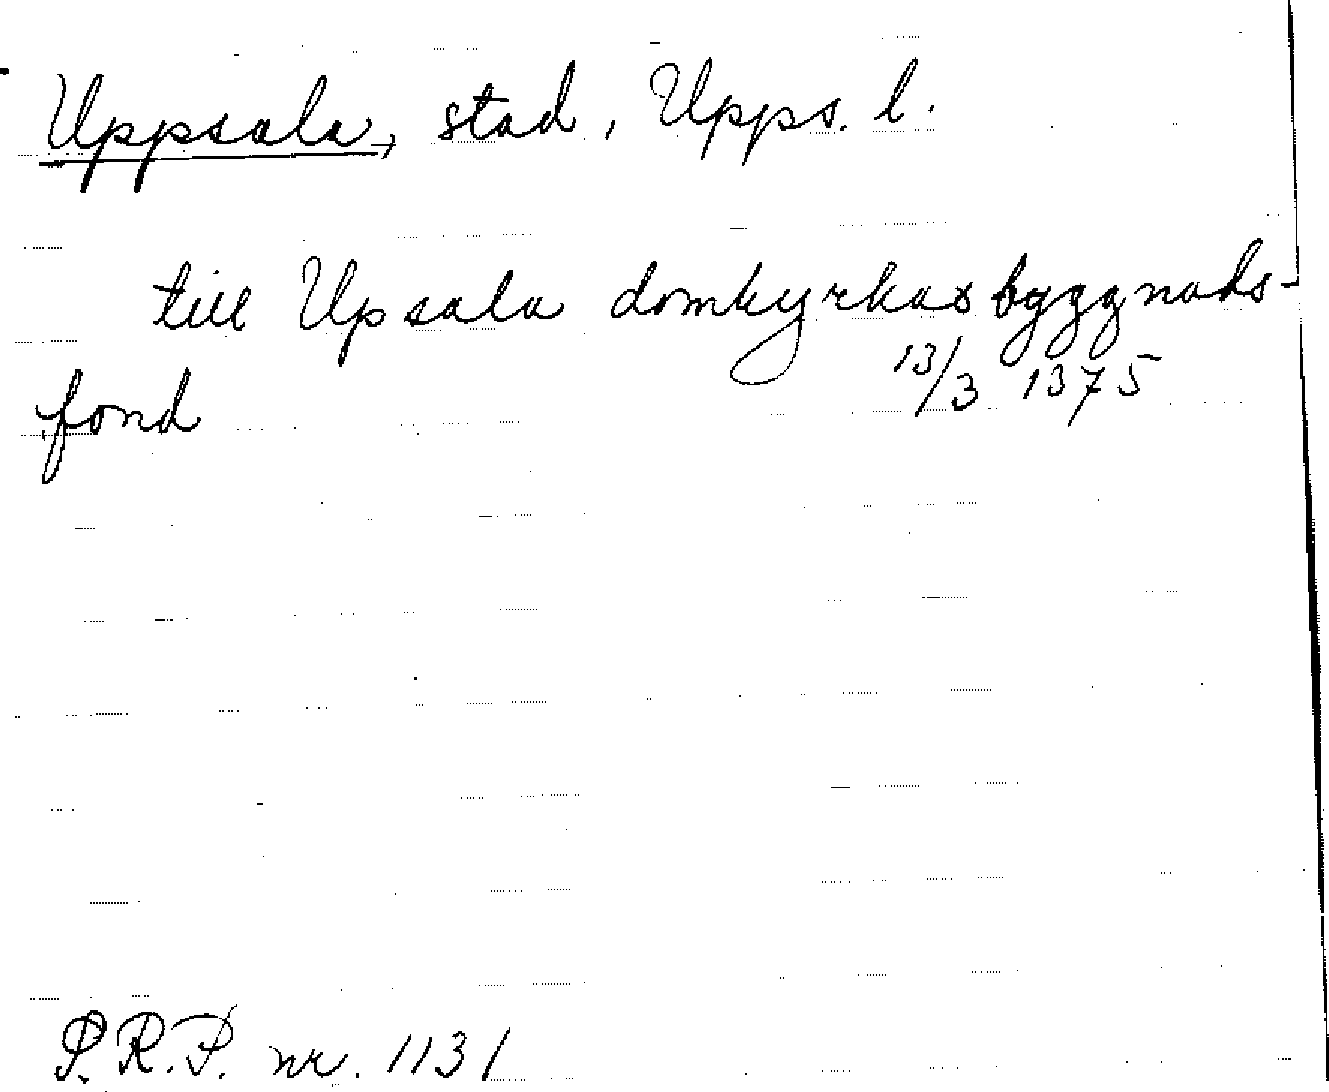 Uppsala, stad, Upps. l.
till Upsala domkyrkas byggnads-
fond 13/3 1375
S.R.P. nr. 1131